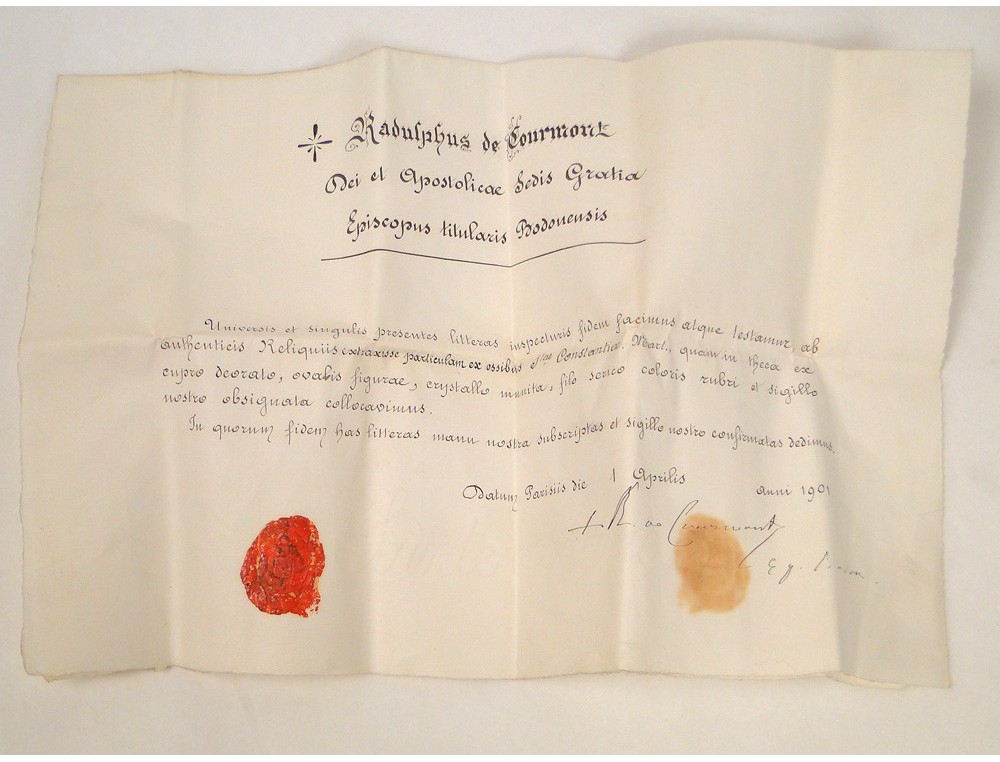 Radulphus de Courmont
Dei et Apostolicae Sedis Gratia
Episcopus titularis Bodonensis
Universis et singulis presentes litteras inspecturis fidem facimus atque testamur, ab
authenticis Reliquiis extraxisse particulam ex ossibus Stae Constantia. Mart., quam in theca ex
cupro deorato, ovalis figurae, crystallo munita, filo serico coloris rubri et sigillo
nostro obsignata collocavimus.
In quorum fidem has litteras manu nostra subscriptas et sigillo nostro confirmatas dedimus.
Datum Parisiis die 1 Aprilis anni 1901
+ R. de Courmont